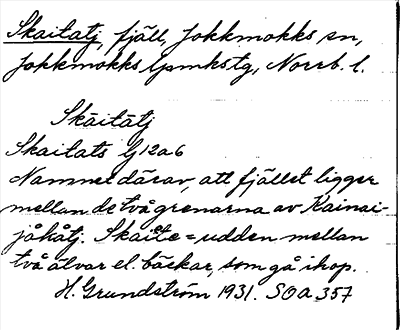 Skaitatj, fjäll, Jokkmokks sn,
Jokkmokks lpmkstg, Norrb. l.
Skäitätj
Skaitats G12a6
Namnet därav, att fjället ligger
mellan de två grenarna av Kainai-
jåkåtj. Skaite = udden mellan
två älvar el. bäckar, som gå ihop.
H. Grundström 1931. SOA 357